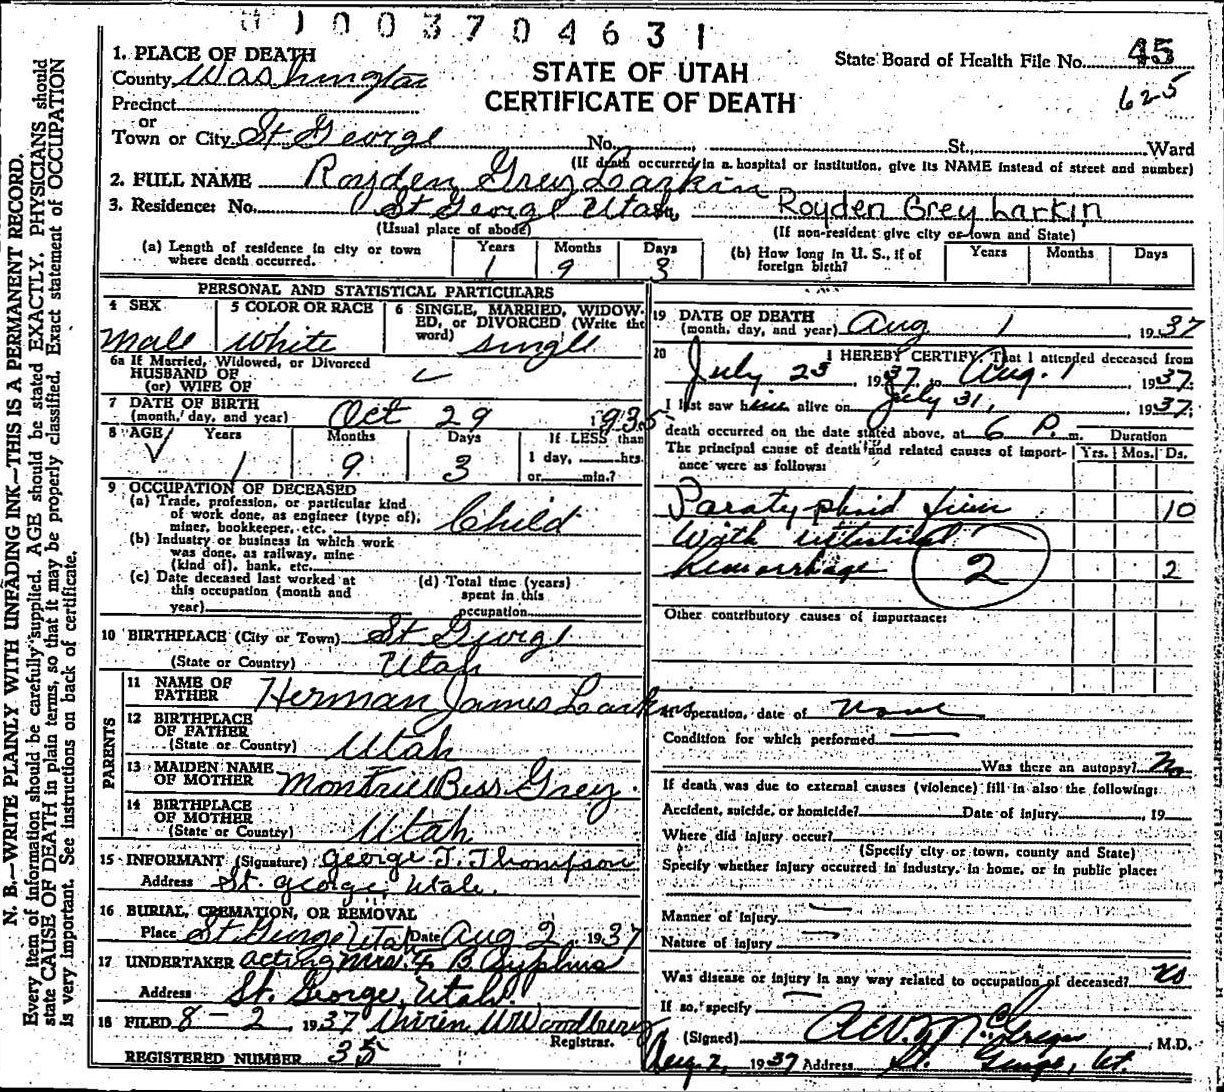 0 1 0 0 3 7 0 4 6 3 1
N. B.—WRITE PLAINLY WITH UNFADING INK—THIS IS A PERMANENT RECORD.
Every item of information should be carefully supplied. AGE should be stated EXACTLY. PHYSICIANS should
state CAUSE OF DEATH in plain terms, so that it may be properly classified. Exact statement of OCCUPATION
is very important. See instructions on back of certificate.
STATE OF UTAH
CERTIFICATE OF DEATH
State Board of Health File No. 45
625
1. PLACE OF DEATH
County Washington
Precinct
or
Town or City St George No. St., Ward
(If death occurred in a hospital or institution, give its NAME instead of street and number)
2. FULL NAME Royden Grey Larkin
3. Residence: No. St George Utah, Royden Grey Larkin
(Usual place of abode) (If non-resident give city or town and State)
(a) Length of residence in city or town where death occurred. Years 1 Months 9 Days 3
(b) How long in U. S., if of foreign birth? Years Months Days
PERSONAL AND STATISTICAL PARTICULARS
4 SEX Male
5 COLOR OR RACE White
6 SINGLE, MARRIED, WIDOWED, or DIVORCED (Write the word) Single
6a If Married, Widowed, or Divorced
HUSBAND OF
(or) WIFE OF
7 DATE OF BIRTH
(month, day, and year) Oct 29 1935
8 AGE Years 1 Months 9 Days 3 If LESS than
1 day, hrs.
or min.?
9 OCCUPATION OF DECEASED
(a) Trade, profession, or particular kind
of work done, as engineer (type of),
miner, bookkeeper, etc. Child
(b) Industry or business in which work
was done, as railway, mine
(kind of), bank, etc.
(c) Date deceased last worked at
this occupation (month and
year)
(d) Total time (years)
spent in this
occupation
10 BIRTHPLACE (City or Town) St George
(State or Country) Utah
PARENTS
11 NAME OF
FATHER Herman James Larkin
12 BIRTHPLACE
OF FATHER
(State or Country) Utah
13 MAIDEN NAME
OF MOTHER Bess Grey
14 BIRTHPLACE
OF MOTHER
(State or Country) Utah
15 INFORMANT (Signature) George T. Thompson
Address St. George, Utah.
16 BURIAL, CREMATION, OR REMOVAL
Place St George Utah Date Aug 2, 1937
17 UNDERTAKER acting Mrs. F B
Address St. George, Utah.
18 FILED 8-2, 1937 W Woodbury
Registrar.
REGISTERED NUMBER 35
19 DATE OF DEATH
(month, day, and year) Aug 1 1937
20 I HEREBY CERTIFY, That I attended deceased from
July 23, 1937 to Aug. 1 1937.
I last saw him alive on July 31, 1937.
death occurred on the date stated above, at 6 P. m.
The principal cause of death and related causes of importance were as follows: Duration
Yrs. Mos. Ds.
Paratyphoid fever 10
With intestinal
hemorrhage 2
2
Other contributory causes of importance:
If operation, date of None
Condition for which performed
Was there an autopsy? No
If death was due to external causes (violence) fill in also the following:
Accident, suicide, or homicide? Date of injury , 19
Where did injury occur?
(Specify city or town, county and State)
Specify whether injury occurred in industry, in home, or in public place:
Manner of Injury
Nature of injury
Was disease or injury in any way related to occupation of deceased? No
If so, specify
(Signed) A.W. McGregor, M.D.
Aug 2, 1937 Address St. George, Ut.